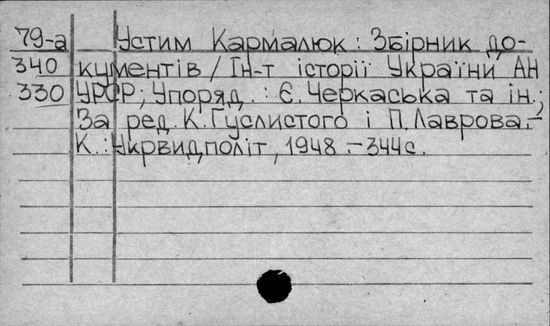 79-а Устим Кармалюк : Збірник до-
340 кументів / Ін-т історії України АН
330 УРСР ; Упоряд. : Є. Черкаська та ін. ;
За ред. К. Гуслистого і П. Лаврова. -
К. : Укрвидполіт, 1948. - 344 с.